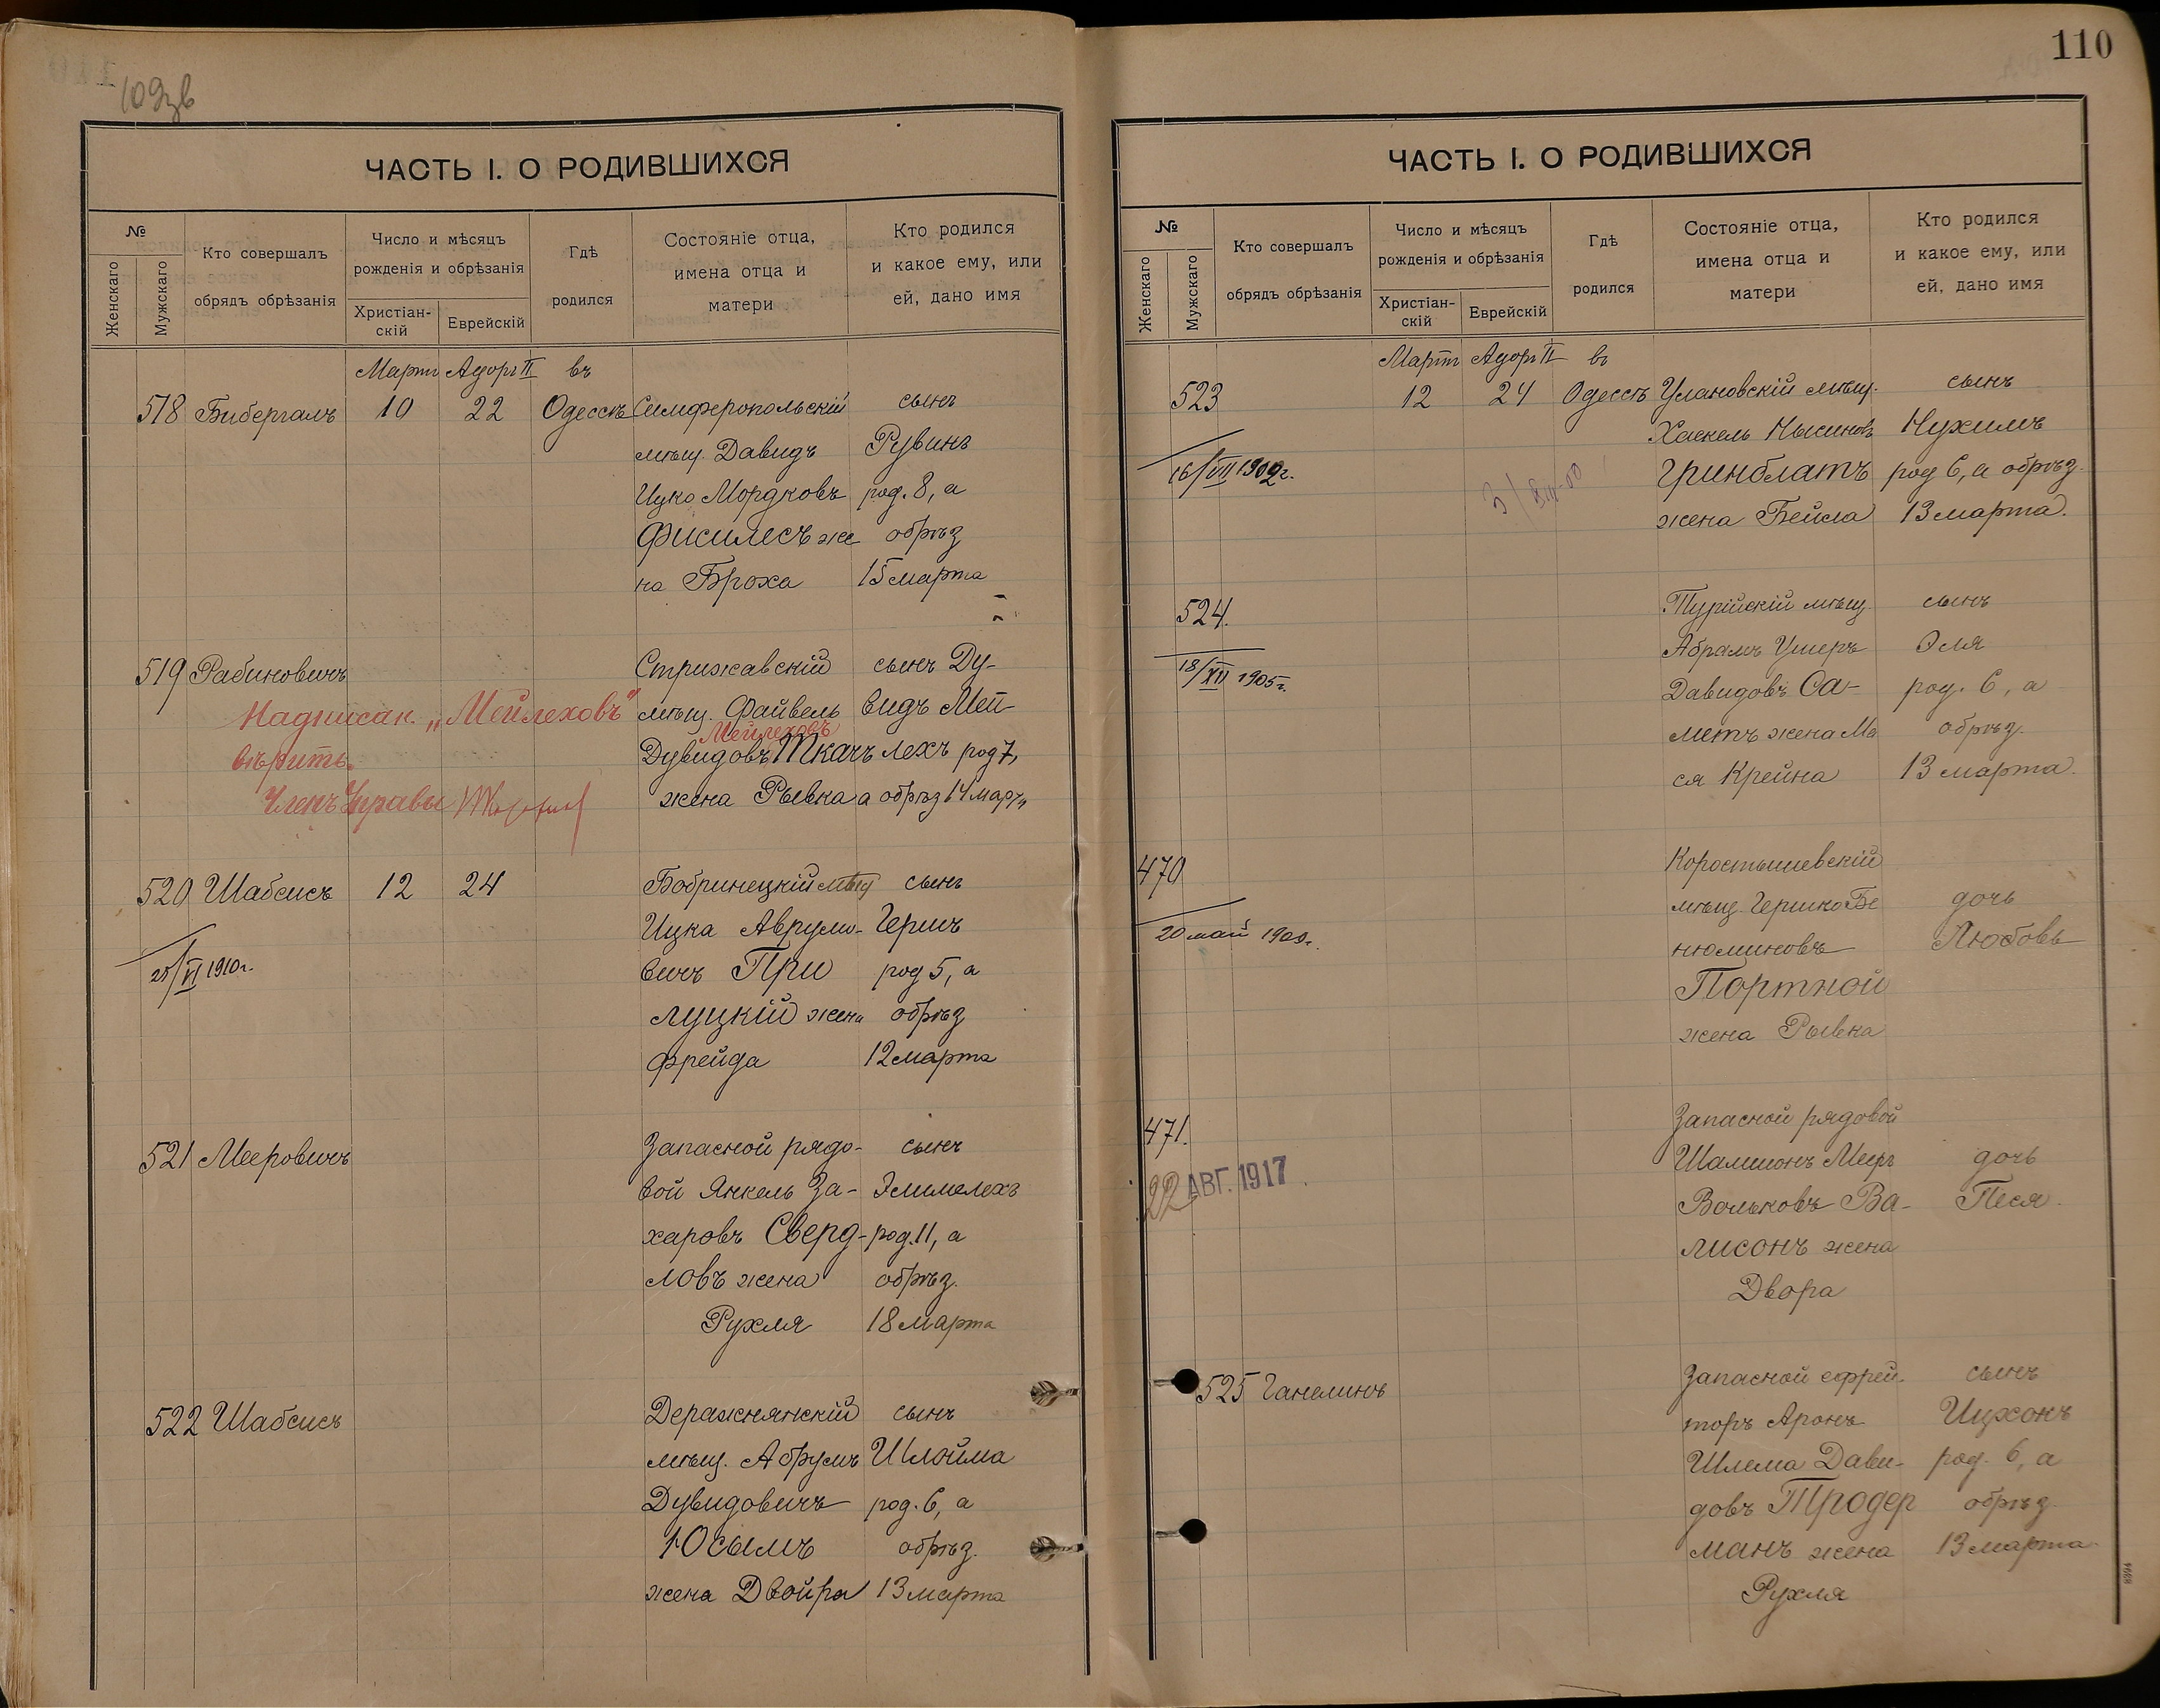 109зв
ЧАСТЬ I. О РОДИВШИХСЯ
№
Женскаго
Мужскаго
Кто совершалъ
обрядъ обрѣзанія
Число и мѣсяцъ
рожденія и обрѣзанія
Христіан-
скій
Еврейскій
Гдѣ
родился
Состояніе отца,
имена отца и
матери
Кто родился
и какое ему, или
ей, дано имя
Мартъ Адоръ II въ
518 Бибергалъ 10 22 Одессѣ Симферопольскій сынъ
мѣщ. Давидъ Рувинъ
Ицко Мордковъ род. 8, а
Фисилесъ же обрѣз
на Броха 15 марта
519 Рабиновичъ Стрижавскій сынъ Ду-
Надписан. „Мейлеховъ" мѣщ. Файвель видъ Мей-
Мейлеховъ
вѣрить. Дувидовъ Ткачъ лехъ род 7,
Членъ Управы жена Рывка а обрѣз 14 марта
520 Шабсисъ 12 24 Бобринецкій мѣщ сынъ
Ицка Аврумо- Гершъ
25/VI 1910г. вичъ При род 5, а
луцкій жена обрѣз
Фрейда 12 марта
521 Мееровичъ Запасной рядо- сынъ
вой Янкель За- Элимелехъ
харовъ Сверд- род. 11, а
ловъ жена обрѣз.
Рухля 18 марта
522 Шабсисъ Деражнянскій сынъ
мѣщ. Абрумъ Шлойма
Дувидовичъ род. 6, а
Юсымъ обрѣз.
жена Двойра 13 марта
110
ЧАСТЬ I. О РОДИВШИХСЯ
№
Женскаго
Мужскаго
Кто совершалъ
обрядъ обрѣзанія
Число и мѣсяцъ
рожденія и обрѣзанія
Христіан-
скій
Еврейскій
Гдѣ
родился
Состояніе отца,
имена отца и
матери
Кто родился
и какое ему, или
ей, дано имя
Мартъ Адоръ II въ
523 12 24 Одессѣ Улановскій мѣщ. сынъ
Хаскель Нысиновъ Нухимъ
16/VII 1902г. Гринблатъ род 6, а обрѣз.
жена Бейла 13 марта.
524. Турійскій мѣщ. сынъ
Абрамъ Ушеръ Эля
18/XII 1905г. Давидовъ Са- род. 6, а
метъ жена Ма обрѣз.
ся Крейна 13 марта.
470 Коростышевскій
мѣщ. Гершко Бе дочь
20 май 1900г. нюминовъ Любовь
Портной
жена Рывка
471. Запасной рядовой
Шамшонъ Мееръ дочь
22 АВГ. 1917 Вольковъ Ва- Песя.
лисонъ жена
Двора
525 Ганелинъ Запасной ефрей- сынъ
торъ Аронъ Ицхокъ
Шлема Дави- род. 6, а
довъ Тродер обрѣз
манъ жена 13 марта
Рухля